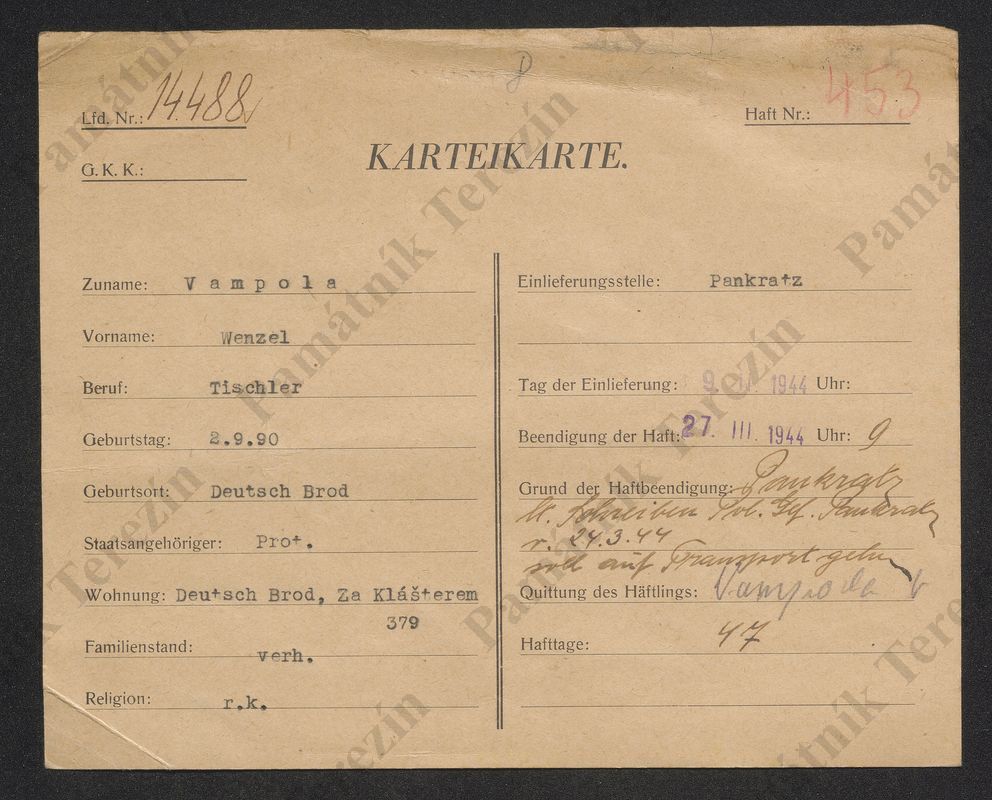 Lfd. Nr.: 14.488
Haft Nr.: 453
G. K. K.:
KARTEIKARTE.
Zuname: Vampola
Vorname: Wenzel
Beruf: Tischler
Geburtstag: 2.9.90
Geburtsort: Deutsch Brod
Staatsangehöriger: Prot.
Wohnung: Deutsch Brod, Za Klášterem
379
Familienstand: verh.
Religion: r.k.
Einlieferungsstelle: Pankratz
Tag der Einlieferung: 9. 1944 Uhr:
Beendigung der Haft: 27. III. 1944 Uhr: 9
Grund der Haftbeendigung: Pankratz
lt. Schreiben Pol. Gef. Pankratz
v. 24.3.44
soll auf Transport gehen
Quittung des Häftlings: Vampola V
Hafttage: 47
Památník Terezín
Památník Terezín
Památník Terezín
Památník Terezín